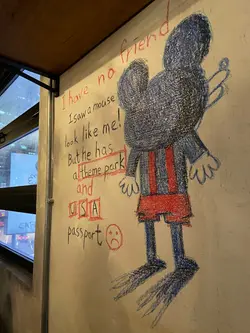 I have no friend
I saw a mouse
look like me!
But he has
a theme park
and
USA
passport